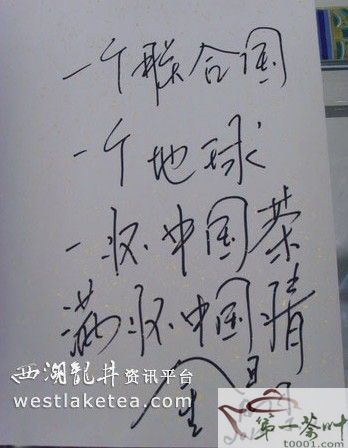 一个联合国
一个地球
一杯中国茶
满杯中国情
西湖龍井资讯平台
westlaketea.com
第一茶叶
t0001.com